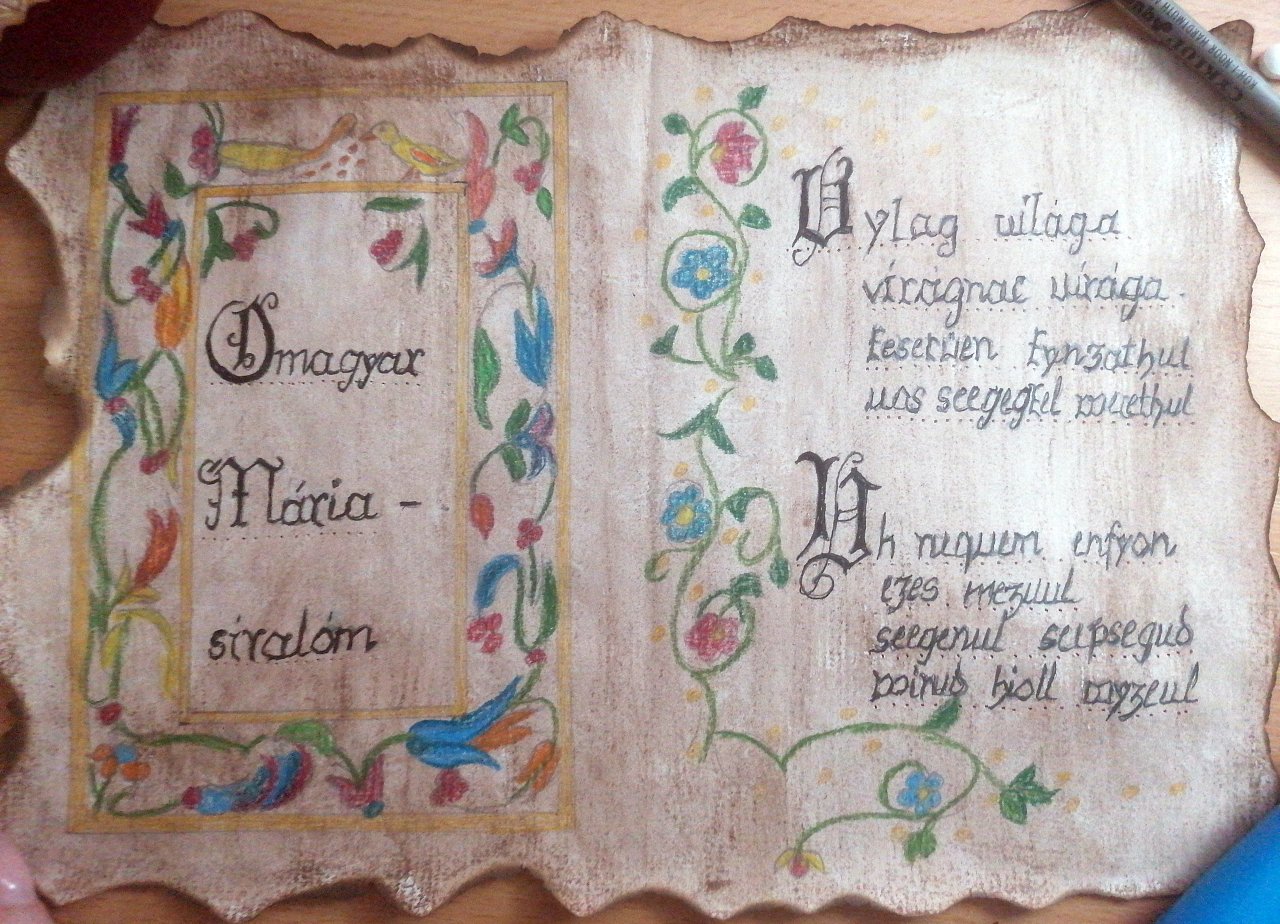 Omagyar
Mária -
siralom
Vylag uilága
virágnac uirága.
keseruen kynzathul
uos scegegkel werethul
Uh nequem enfyon
ezes mezuul
scegenul scepsegud
wirud hioll wyzeul